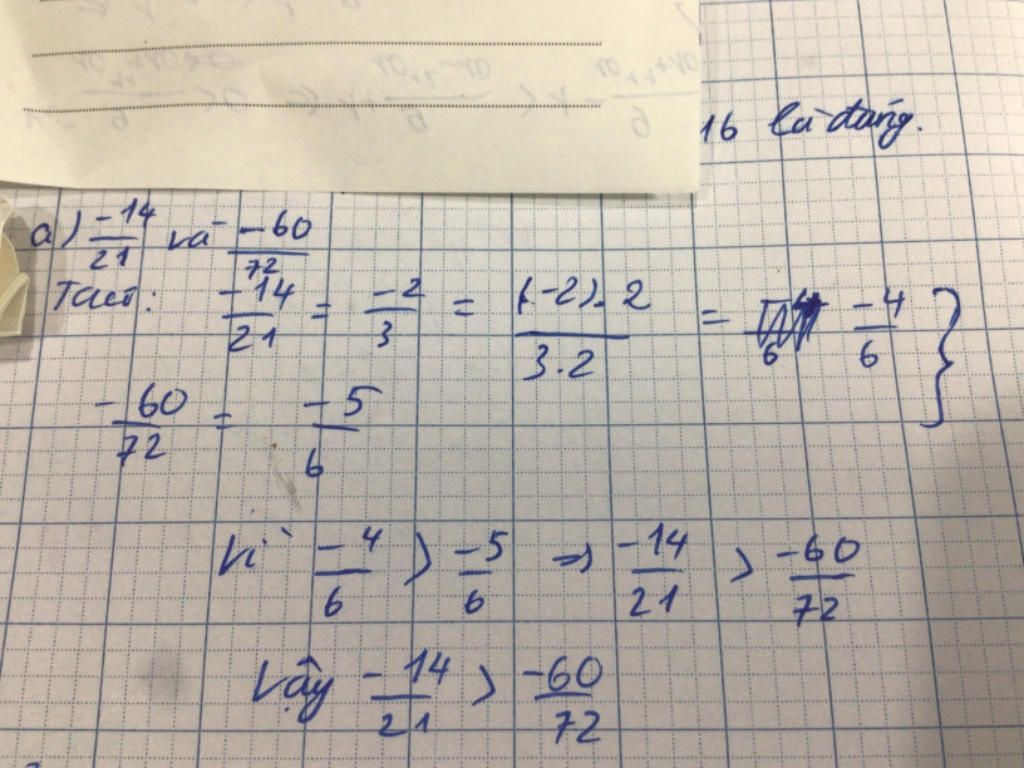 16 là đúng.
a) -14/21 và -60/72
Ta có: -14/21 = -2/3 = (-2).2/3.2 = -4/6 }
-60/72 = -5/6
Vì -4/6 > -5/6 => -14/21 > -60/72
Vậy -14/21 > -60/72